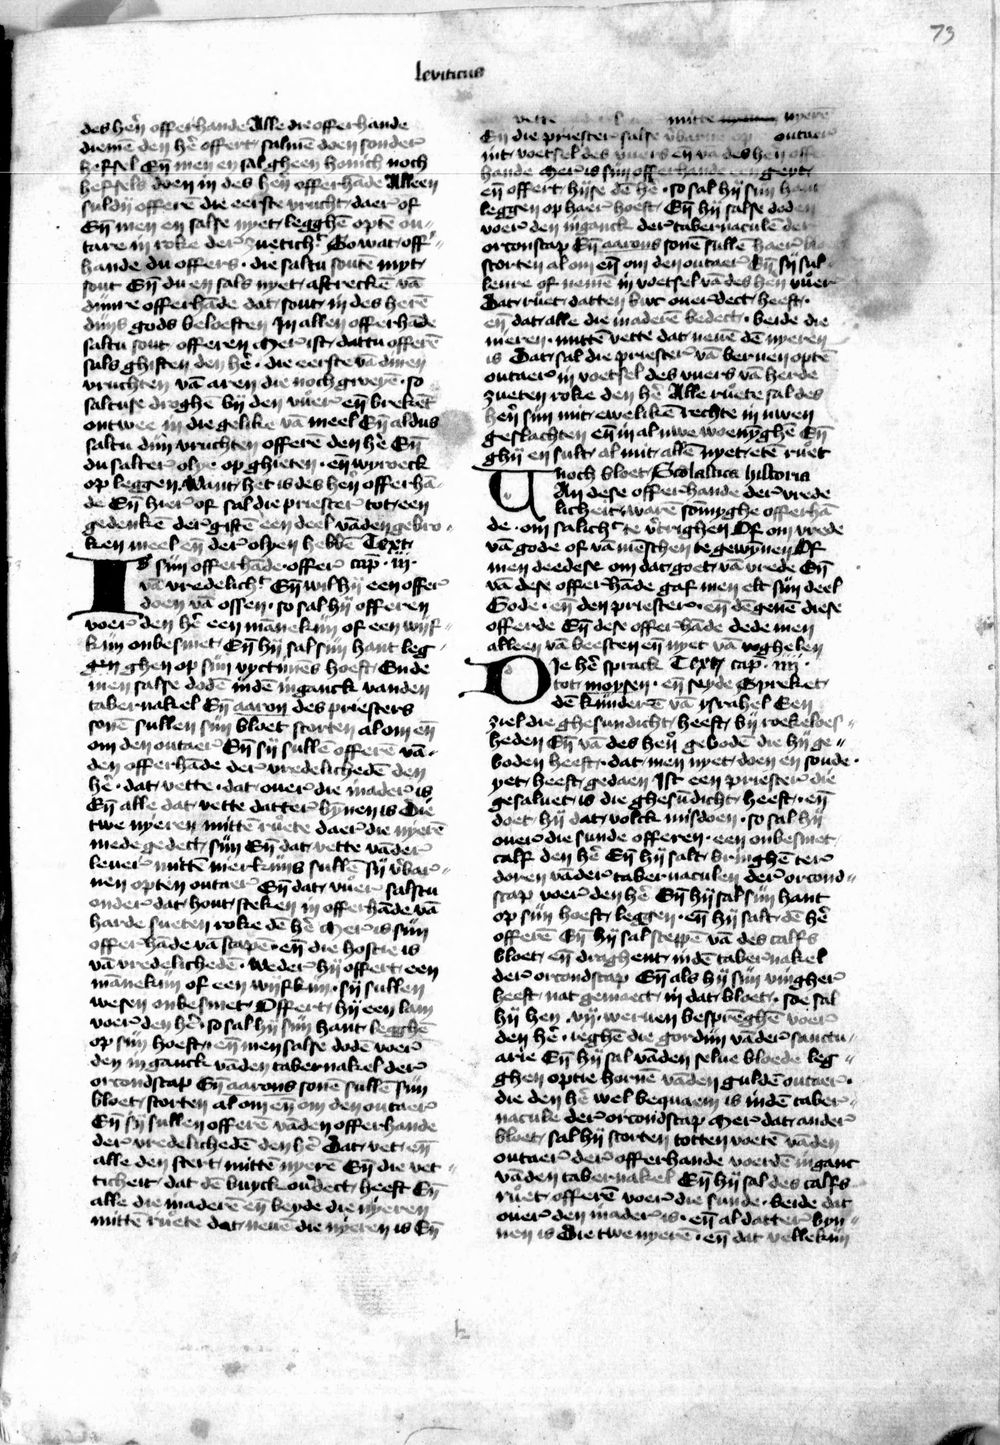 73
leviticus
des hen̄ offerhande Alle die offerhande
diemē den hē offert salmē doen sonder
heffsel Eñ men en sal gheen honich noch
heffsels doen in des hen̄ offerhāde Alleen
suldij offerē die eerste vrucht daer of
Eñ men en salse nyet legghē opte ou-
tare in roke der zueticht̄ So wat off-
hande du offers · die saltu soutē myt
sout Eñ du en sals nyet aftreckē vā
dijnre offerhāde dat sout in des herē
dijns gods beloeften In allen offerhāde
saltu sout offeren Mer ist dattu offerē
sals ghiften den hē · die eerste vā dinen
vruchten vā aren die noch groyē · so
saltuse droghē bij den vuer eñ brekēt
ontwee in die gelike vā meel Eñ aldus
saltu dijn vruchten offerē den hē Eñ
du salter olye · op ghieten · eñ wyroeck
op leggen Want het is des hen̄ offerhā-
de Eñ hier of sal die priester tot een
gedenkē der giftē een deel vādengebro-
ken meel eñ der olyen hebbē Text
Is sijn offerhāde offer cap̄ · iij ·
vā vredelicht̄ Eñ wil hij een offer
doen vā ossen · so sal hij offeren
voer den hē een mānekijn of een wijf-
kijn onbesmet Eñ hij sal sijn hant leg-
ghen op sijn vyctimes hoeft Ende
men salse dodē indē inganck vanden
tabernakel Eñ aaron des priesters
sonē sullen sijn bloet storten al om eñ
om den outaer Eñ sij sullē offerē vā-
den offerhāde der vredelichedē den
hē · dat vette · dat ouer die mader is
Eñ alle dat vette datter bynnen is Die
twe nyeren mittē ruete daer die nyerē
mede gedect sijn Eñ dat vette vāder
leuer mittē nierkijns sullē sij v̄bar-
nen opten outaer Eñ dat vuer salstu
onder dat hout steken in offerhāde vā
harde sueten roke dē hē Mer is sijn
offerhāde vā scapē · eñ die hostie is
vā vredelichedē · weder hij offert een
mānekijn of een wijfkijn · sij sullen
wesen onbesmet Offert hij een lam
voer den hē · so sal hij sijn hant legghē
op sijn hoeft · eñ men salse dodē voer
den inganck vāden tabernakel der
orcondscap Eñ aarons sonē sullē sijn
bloet storten al om eñ om den outaer
Eñ sij sullen offerē vāden offerhande
der vredelichedē den hē Dat vet eñ
alle den stert mittē nyerē Eñ die vet-
ticheit dat dē buyck oūdect heeft Eñ
alle die maderē eñ beyde die nyeren
mittē ruete dat neuē die nyeren is Eñ
vette mittē nyerē
Eñ die priester salse v̄barnē op outaer
int voetsel des vuers eñ vā des hen̄ offer
hande Mer is sijn offerhande een geyt
eñ offert hijse dē hē · so sal hij sijn hant
leggen op haer hoeft Eñ hij salse doden
voer den inganck der tabernaculē der
orconscap Eñ aarons sonē sullē haer bloet
storten al om eñ om den outaer Eñ sij sul-
lenre of nemē in voetsel vā des hen̄ vuer
Dat ruet datten buc ouerdect heeft
eñ dat alle die maderē bedect · beide die
nieren · mittē vette dat neuē dē nyeren
is Dat sal die priester vā bernen optē
outaer in voetsel des vuers vā herde
zueten roke den hē Alle ruete sal des
hen̄ sijn mit ewelikē rechte in uwen
geslachten eñ in al uwe woenynghē Eñ
ghij en sult al mit allē nyet etē ruet
noch bloet Scolastica historia
An dese offerhande der vrede
licheit warē sōmyghe offerhā
de · om salicht̄ te v̄crighen Of om vrede
vā gode of vā mēschen te gewynen Of
men deedese om dat goet vā vrede Eñ
vā dese offerhāde gaf men elc sijn deel
Gode · eñ den priester · eñ dē genē diese
offerde Eñ dese offerhāde dede men
alleen vā beesten eñ nyet vā voghelen
Die hē sprack Text cap̄ · iiij ·
tot moysen · eñ seyde Spreket
dē kijnderē vā ysrahel Een
ziel die ghesundicht heeft bij roekeloes-
heden Eñ vā des hen̄ gebodē die hij ge-
boden heeft · dat men nyet doen en soude ·
yet heeft gedaen Ist een priester die
gesaluet is die ghesūdicht heeft · eñ
doet hij dat volck misdoen · so sal hij
ouer die sunde offeren · een onbesmet
calf den hē Eñ hij salt bringhē ter
doren vāder tabernaculen der orcond-
scap voer den hē Eñ hij sal sijn hant
op sijn hoeft leggen · eñ hij salt dē hē
offerē Eñ hij sal sceppē vā des calfs
bloet eñ draghent indē tabernakel
der orcondscap Eñ als hij sijn vingher
heeft nat gemaect in dat bloet · soe sal
hij hen · vij · weruen besprēghē voer
den hē · ieghē die gordijn vāder sanctu-
arie Eñ hij sal vāden selue bloede leg-
ghen optie hornē vāden guldē outaer ·
die den hē wel bequaem is indē taber-
nacule der orcondscap Mer dat ander
bloet sal hij storten totten voetē vāden
outaer der offerhande voerdē inganc
vāden tabernakel Eñ hij sal des calfs
ruet offerē voer die sunde · beide dat
ouer den mader is · eñ al datter byn-
nen is Die twe nyerē · eñ dat vellekijn